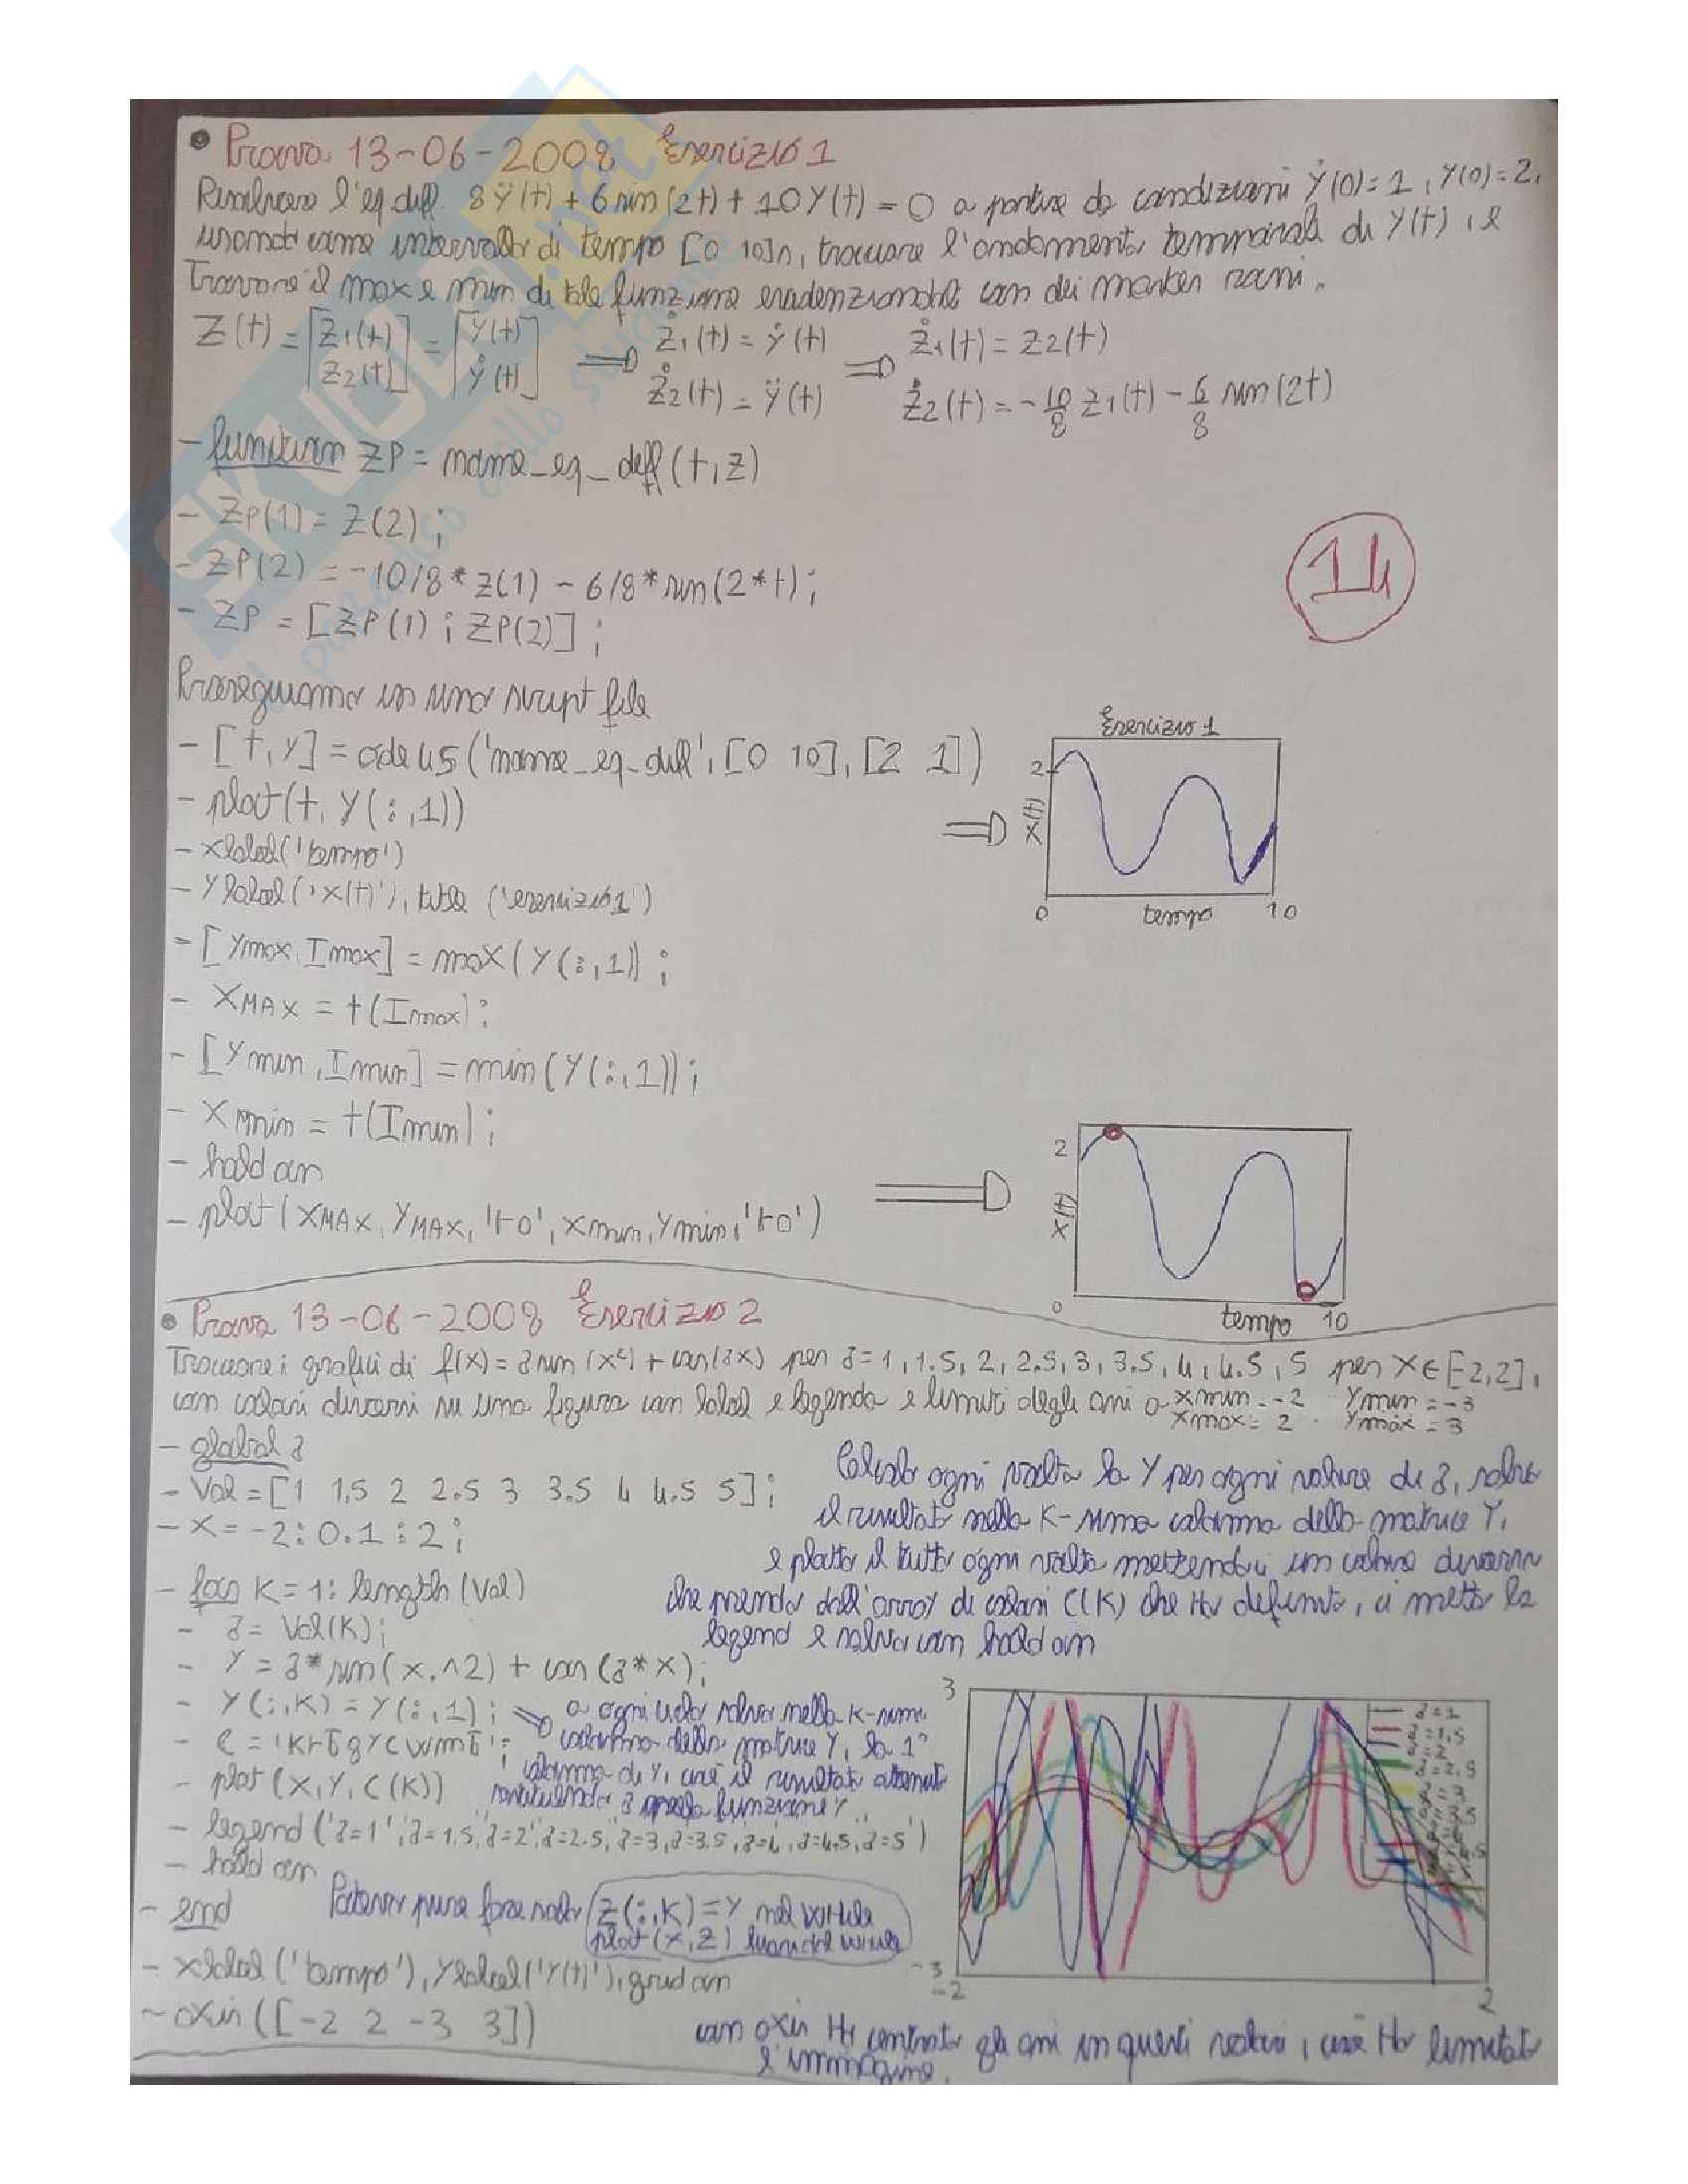 • Prova 13-06-2008 Esercizio 1
Risolvere l'eq diff. 8ÿ(t) + 6 sin(2t) + 10 y(t) = 0 a partire da condizioni ẏ(0)=1, y(0)=2,
usando come intervallo di tempo [0 10]s, tracciare l'andamento temporale di y(t), e
Trovare il max e min di tale funzione evidenziandoli con dei marker rossi.
Z(t) = [Z1(t) Z2(t)] = [y(t) ẏ(t)] => Ż1(t) = ẏ(t) => Ż1(t) = Z2(t)
Ż2(t) = ÿ(t) Ż2(t) = -10/8 Z1(t) - 6/8 sin(2t)
- function ZP = nome_eq_diff(t,z)
- ZP(1) = Z(2);
- ZP(2) = -10/8*z(1) - 6/8*sin(2*t);
- ZP = [ZP(1); ZP(2)];
14
Proseguiamo in uno script file
- [t,y] = ode45('nome_eq_diff',[0 10],[2 1])
- plot(t, y(:,1))
- xlabel('tempo')
- ylabel('x(t)'), title('esercizio1')
Esercizio 1
2
x(t)
0 tempo 10
- [Ymax,Imax] = max(Y(:,1));
- XMAX = t(Imax);
- [Ymin,Imin] = min(Y(:,1));
- Xmin = t(Imin);
- hold on
- plot(XMAX, YMAX, 'ro', Xmin, Ymin, 'ro')
2
x(t)
0 tempo 10
• Prova 13-06-2008 Esercizio 2
Tracciare i grafici di f(x) = a sin(x²) + cos(ax) per a=1, 1.5, 2, 2.5, 3, 3.5, 4, 4.5, 5 per x∈[-2,2],
con colori diversi su una figura con label e legenda e limiti degli assi a xmin=-2 ymin=-3
xmax=2 ymax=3
- global a
- Val = [1 1.5 2 2.5 3 3.5 4 4.5 5];
- X = -2:0.1:2;
- for K=1:length(Val)
- a = Val(K);
- Y = a*sin(x.^2) + cos(a*x);
- Y(:,K) = Y(:,1);
- plot(X,Y,C(K))
- legend('a=1','a=1.5','a=2','a=2.5','a=3','a=3.5','a=4','a=4.5','a=5')
- hold on
- end
- xlabel('tempo'), ylabel('Y(t)'), grid on
- axis([-2 2 -3 3])
Calcolo ogni volta la Y per ogni valore di a, salvo
il risultato nella K-sima colonna della matrice Y,
e plotto il tutto ogni volta mettendoci un colore diverso
che prendo dall'array di colori C(K) che Ho definito, ci metto la
legend e salvo con hold on
=> a ogni ciclo salvo nella K-sima
colonna della matrice Y, la 1°
colonna di Y, cioè il risultato ottenuto
sostituendo a nella funzione Y
Potevo pure fare salvo Z(:,K)=Y nel while
plot(X,Z) fuori dal while
3
-3
-2
2
a=1
con axis Ho centrato gli assi in questi valori, cioè Ho limitato
l'immagine.